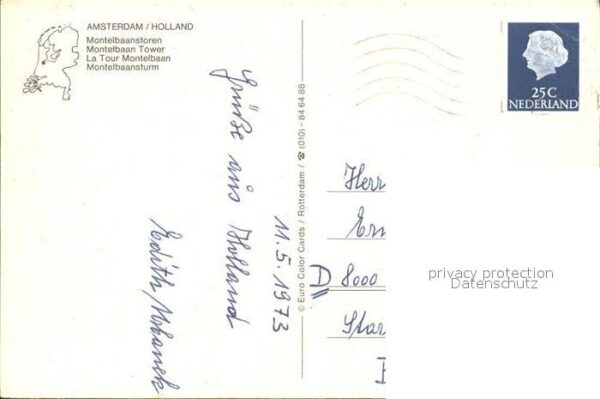 AMSTERDAM / HOLLAND
Montelbaanstoren
Montelbaan Tower
La Tour Montelbaan
Montelbaansturm
25 C
NEDERLAND
Grüße aus Holland
11.5.1973
Edith Urbanek
© Euro Color Cards / Rotterdam / ☎ (010) - 84 64 88
Herr
D 8000
privacy protection
Datenschutz